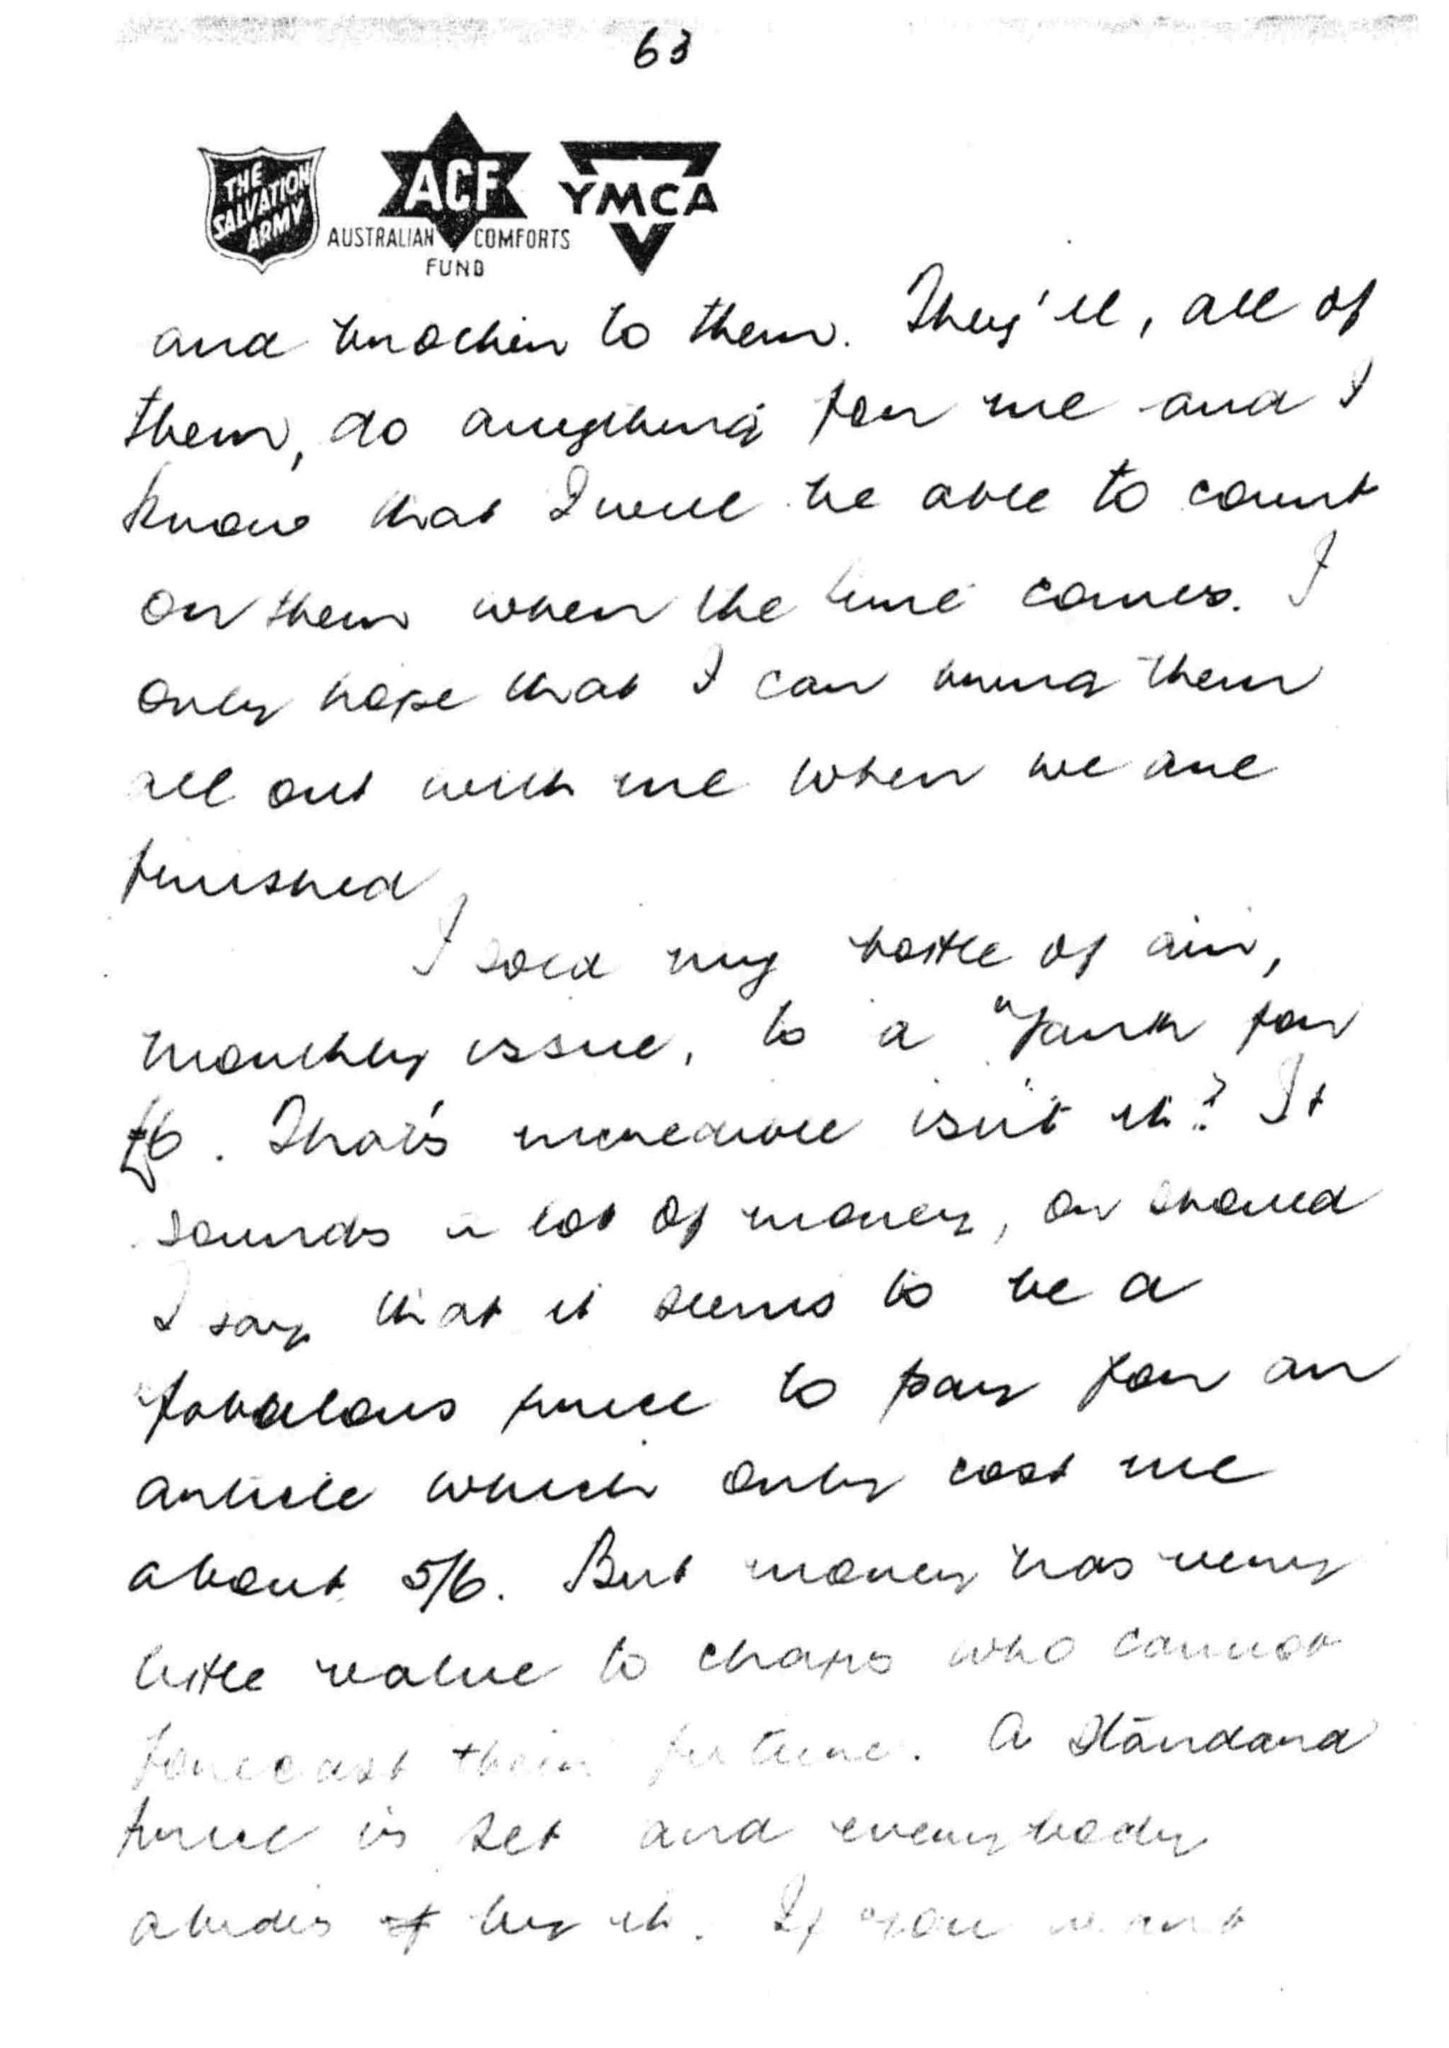 63
THE SALVATION ARMY
ACF
AUSTRALIAN COMFORTS FUND
YMCA
and brother to them. They'll, all of
them, do anything for me and I
know that I will be able to count
on them when the time comes. I
only hope that I can bring them
all out with me when we are
finished
I sold my bottle of
monthly issue, to a "Yank for
£6. That's incredible isn't it? It
sounds a lot of money, or should
I say that it seems to be a
fabulous price to pay for an
article which only cost me
about 5/6. But money has very
little value to chaps who cannot
forecast their future. A standard
price is set and everybody
abides by it. If you want